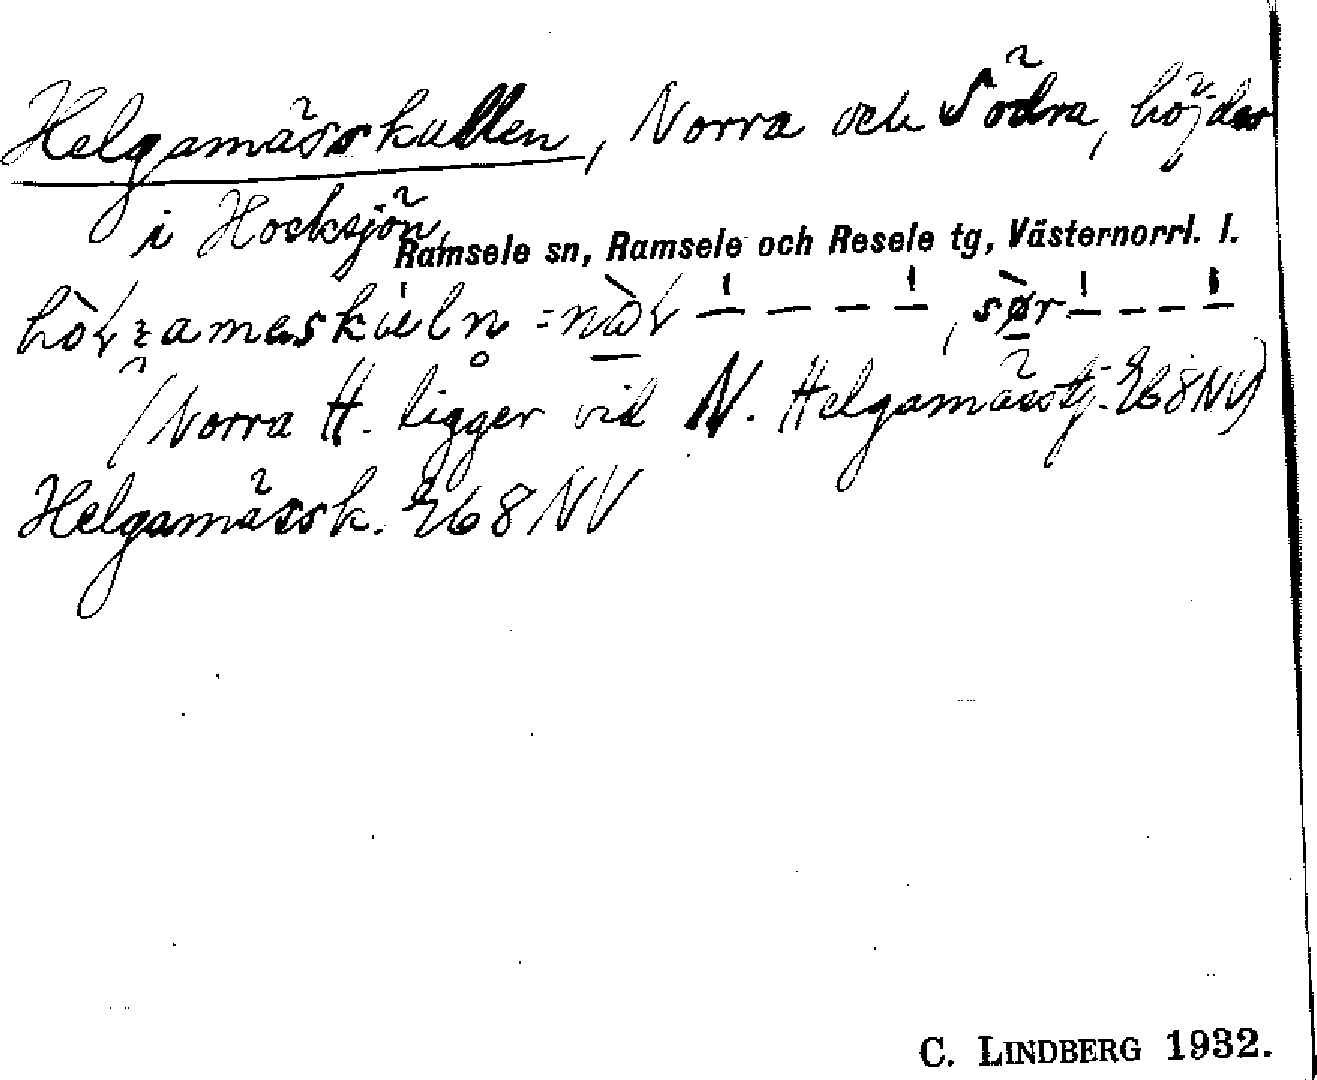 Helgamässkullen, Norra och Södra, höjder
i Hocksjön,
Ramsele sn, Ramsele och Resele tg, Västernorrl. l.
(Norra H. ligger vid N. Helgamässtj. E68NV)
Helgamässk. E68NV
C. LINDBERG 1932.